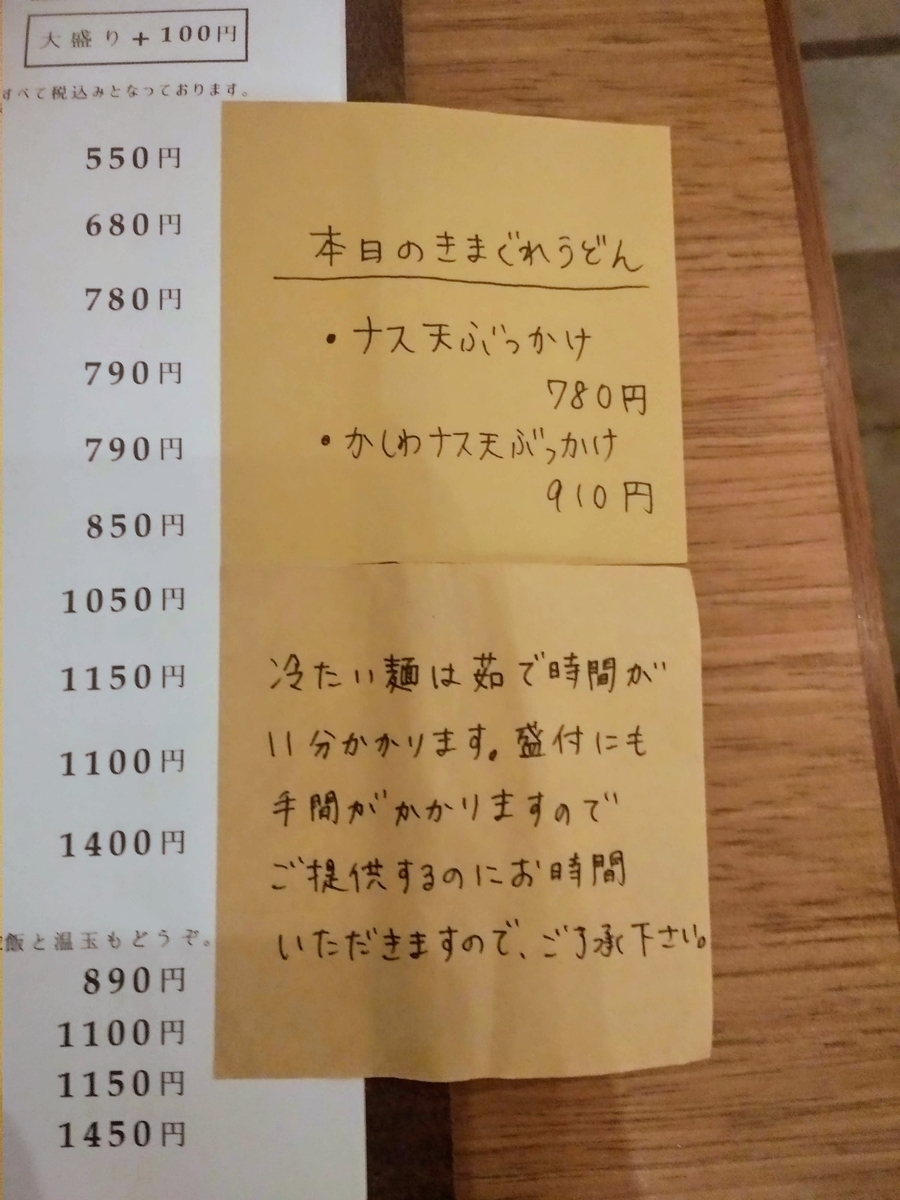 大盛り+100円
すべて税込みとなっております。
550円
680円
780円
790円
790円
850円
1050円
1150円
1100円
1400円
飯と温玉もどうぞ。
890円
1100円
1150円
1450円
本日のきまぐれうどん
・ナス天ぶっかけ
780円
・かしわナス天ぶっかけ
910円
冷たい麺は茹で時間が
11分かかります。盛付にも
手間がかかりますので
ご提供するのにお時間
いただきますので、ご了承下さい。